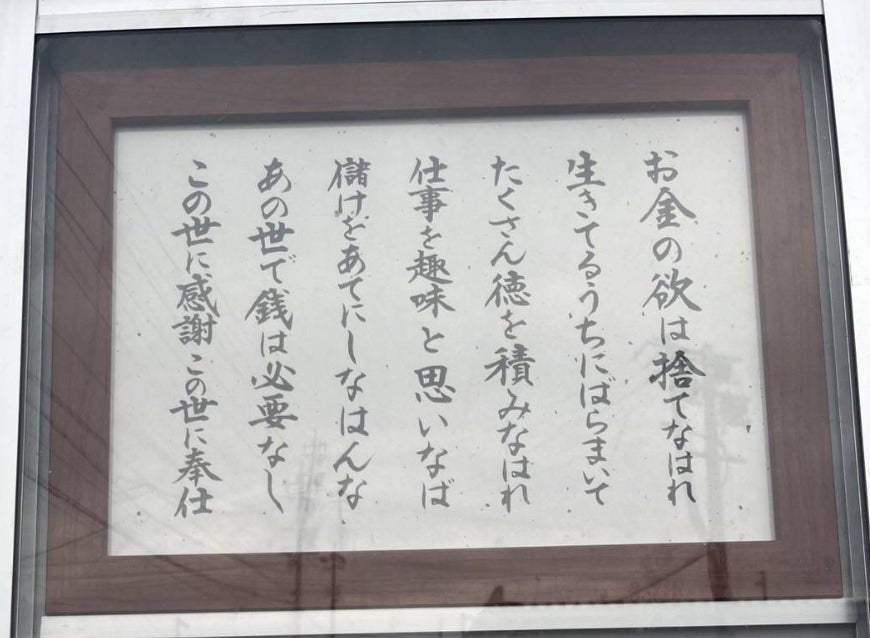 お金の欲は捨てなはれ
生きてるうちにばらまいて
たくさん徳を積みなはれ
仕事を趣味と思いなば
儲けをあてにしなはんな
あの世で銭は必要なし
この世に感謝この世に奉仕